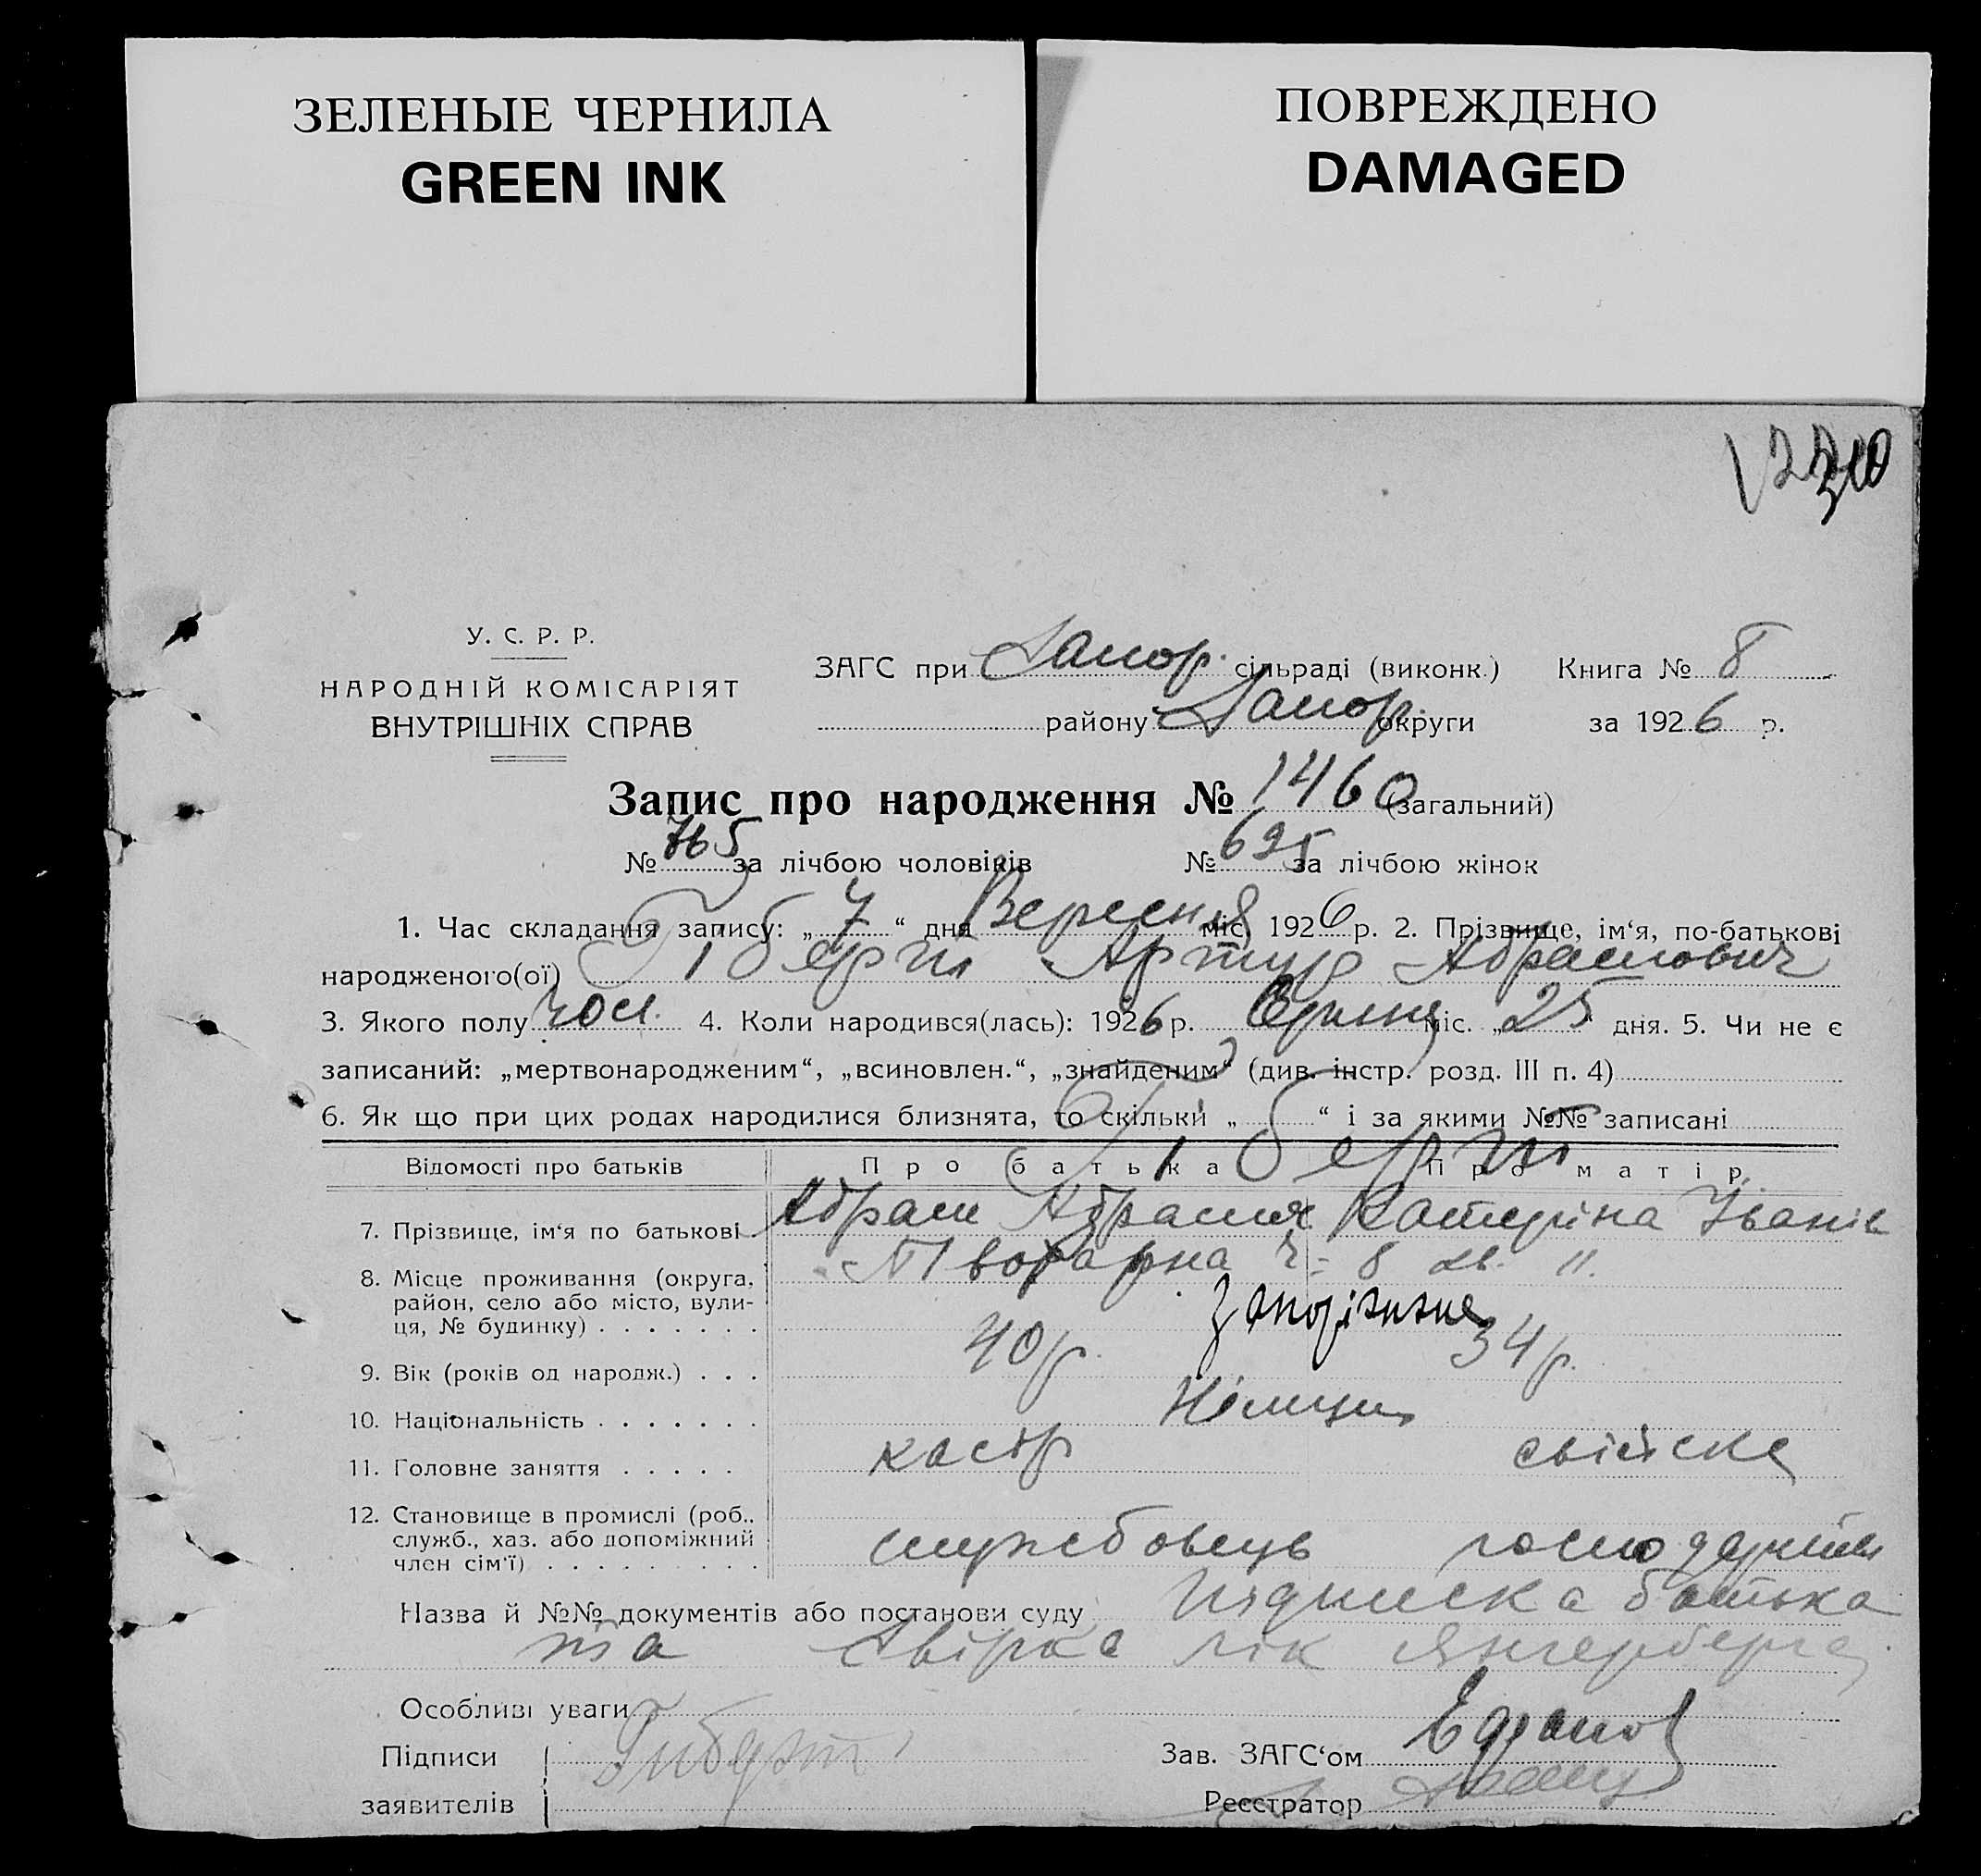 ЗЕЛЕНЫЕ ЧЕРНИЛА
GREEN INK
ПОВРЕЖДЕНО
DAMAGED
У. С. Р. Р.
НАРОДНІЙ КОМІСАРІЯТ
ВНУТРІШНІХ СПРАВ
ЗАГС при Запор. сільраді (виконк.) Книга № 8
району Запор. округи за 1926 р.
Запис про народження № 1460 (загальний)
№ 765 за лічбою чоловіків № 695 за лічбою жінок
1. Час складання запису: „7“ дня Вересня міс. 1926 р. 2. Прізвище, ім‘я, по-батькові
народженого(ої) Гіберт Артур Абрамович
3. Якого полу чол. 4. Коли народився(лась): 1926 р. Серпня міс. „25“ дня. 5. Чи не є
записаний: „мертвонародженим“, „всиновлен.“, „знайденим“ (див. інстр. розд. III п. 4)
6. Як що при цих родах народилися близнята, то скільки „ “ і за якими №№ записані
Відомості про батьків Про батька Про матір
Гіберт
7. Прізвище, ім‘я по батькові Абрам Абрамов Катеріна Іванів
8. Місце проживання (округа, район, село або місто, вулиця, № будинку) ч. 8 кв. 11.
Запоріжжя
9. Вік (років од народж.) 40 р. 34 р.
10. Національність Німці
11. Головне заняття касір свійске
12. Становище в промислі (роб., служб., хаз. або допоміжний член сім‘ї) службовець
Назва й №№ документів або постанови суду Підписка батька
та лік
Особливі уваги
Підписи Гиберт Зав. ЗАГС‘ом
заявителів Реєстратор